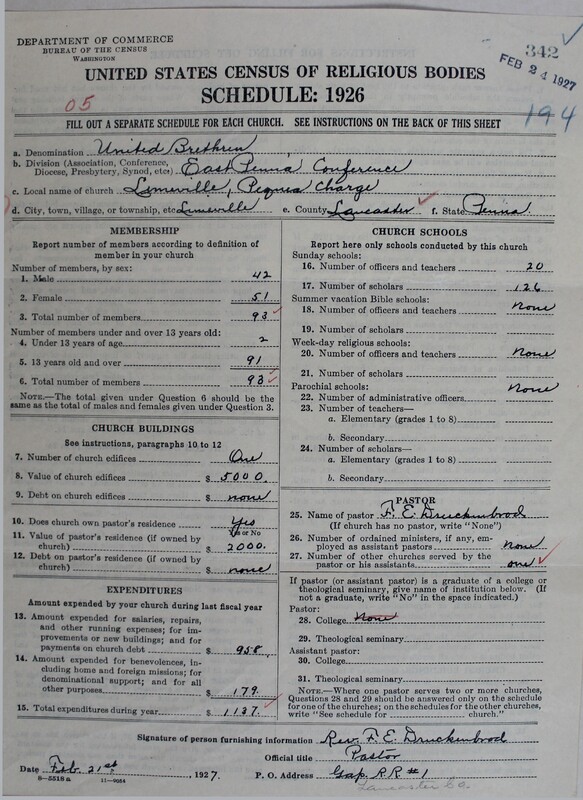 DEPARTMENT OF COMMERCE
BUREAU OF THE CENSUS
WASHINGTON
342
FEB 24 1927
UNITED STATES CENSUS OF RELIGIOUS BODIES
SCHEDULE: 1926
05
194
FILL OUT A SEPARATE SCHEDULE FOR EACH CHURCH. SEE INSTRUCTIONS ON THE BACK OF THIS SHEET
a. Denomination United Brethren
b. Division (Association, Conference, Diocese, Presbytery, Synod, etc) East Penna Conference
c. Local name of church Limeville, Pequea Charge
d. City, town, village, or township, etc Limeville e. County Lancaster f. State Penna
MEMBERSHIP
Report number of members according to definition of
member in your church
Number of members, by sex:
1. Male 42
2. Female 51
3. Total number of members 93
Number of members under and over 13 years old:
4. Under 13 years of age 2
5. 13 years old and over 91
6. Total number of members 93
NOTE.—The total given under Question 6 should be the
same as the total of males and females given under Question 3.
CHURCH BUILDINGS
See instructions, paragraphs 10 to 12
7. Number of church edifices One
8. Value of church edifices $ 5000.
9. Debt on church edifices $ none
10. Does church own pastor's residence Yes
Yes or No
11. Value of pastor's residence (if owned by
church) $ 2000.
12. Debt on pastor's residence (if owned by
church) $ none
EXPENDITURES
Amount expended by your church during last fiscal year
13. Amount expended for salaries, repairs,
and other running expenses; for im-
provements or new buildings; and for
payments on church debt $ 958.
14. Amount expended for benevolences, in-
cluding home and foreign missions; for
denominational support; and for all
other purposes $ 179.
15. Total expenditures during year $ 1137.
CHURCH SCHOOLS
Report here only schools conducted by this church
Sunday schools:
16. Number of officers and teachers 20
17. Number of scholars 126
Summer vacation Bible schools:
18. Number of officers and teachers None
19. Number of scholars
Week-day religious schools:
20. Number of officers and teachers None
21. Number of scholars
Parochial schools: None
22. Number of administrative officers
23. Number of teachers—
a. Elementary (grades 1 to 8)
b. Secondary
24. Number of scholars—
a. Elementary (grades 1 to 8)
b. Secondary
PASTOR
25. Name of pastor F. E. Druckenbrod
(If church has no pastor, write "None")
26. Number of ordained ministers, if any, em-
ployed as assistant pastors None
27. Number of other churches served by the
pastor or his assistants one
If pastor (or assistant pastor) is a graduate of a college or
theological seminary, give name of institution below. (If
not a graduate, write "No" in the space indicated.)
Pastor:
28. College None
29. Theological seminary
Assistant pastor:
30. College
31. Theological seminary
NOTE.—Where one pastor serves two or more churches,
Questions 28 and 29 should be answered only on the schedule
for one of the churches; on the schedules for the other churches,
write "See schedule for church."
Signature of person furnishing information Rev. F. E. Druckenbrod
Official title Pastor
Date Feb. 21st, 1927. P. O. Address Gap, RR #1
Lancaster Co.
8—5518a 11—9064